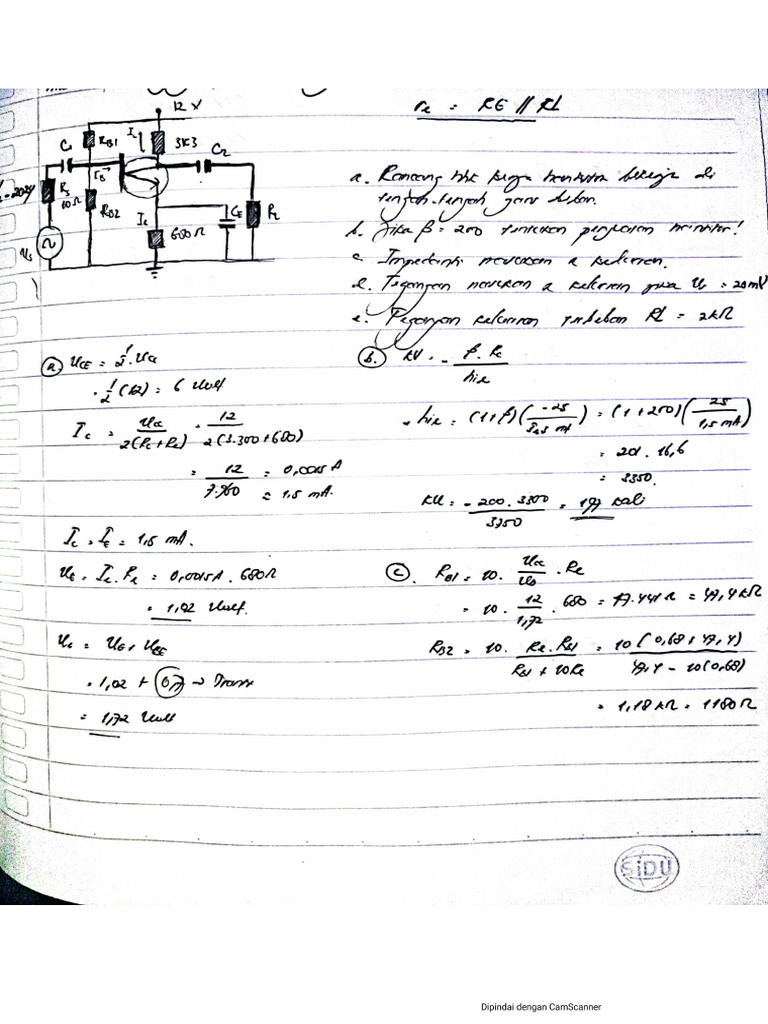 12 V
re = RE // RL
C1
RB1
IC
3K3
C2
IB
RS
60Ω
RB2
IE
680Ω
CE
RL
Us
a. Rancang titik kerja transistor bekerja di
tengah-tengah garis beban.
b. Jika β = 200 tentukan penguatan transistor!
c. Impedansi masukan & keluaran.
d. Tegangan masukan & keluaran jika Us = 20mV
e. Tegangan keluaran terbeban RL = 2kΩ
(a) UCE = 1/2 . UCC
= 1/2 (12) = 6 Volt
IC = UCC / 2(RC+RE) = 12 / 2(3.300+680)
= 12 / 7.960 = 0,0015 A
= 1,5 mA.
IC = IE = 1,5 mA.
UE = IE . RE = 0,0015A . 680Ω
= 1,02 Volt.
= 1,02 + 0,7 → Trans
= 1,72 Volt
(b.) = - β . RC / hie
hie = (1+β) = (1+200) (25 / 1,5 mA)
= 201 . 16,6
= 3350.
= 197 kali
(c). RB1 = 10. . RE
= 10 . 12 / 1,72 . 680 = 47.441 Ω = 47,4 kΩ
RB2 = 10. RE . RB1 / = 10 (0,68 + 47,4) / 47,4 - 10(0,68)
= 1,18 kΩ = 1180 Ω
SiDU
Dipindai dengan CamScanner